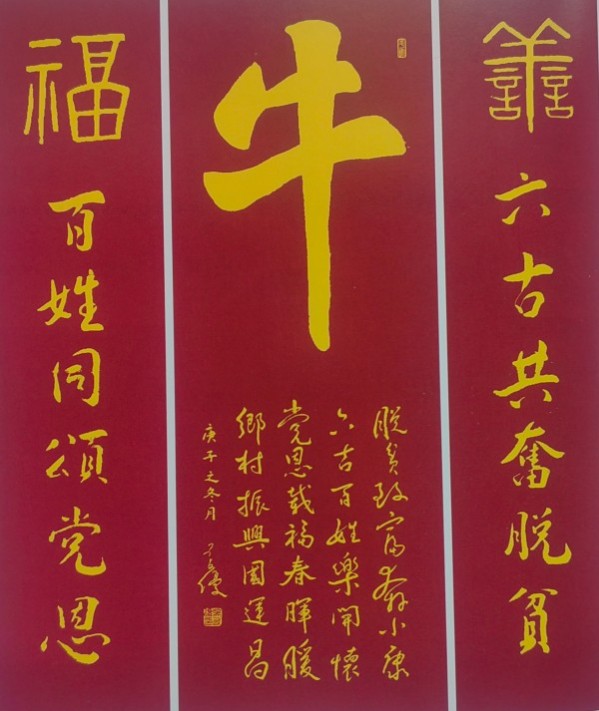 善
六古共奮脱貧
牛
脱貧致富奔小康
六古百姓樂開懷
党恩載福春暉暖
鄉村振興國運昌
庚子之冬月
福
百姓同頌党恩